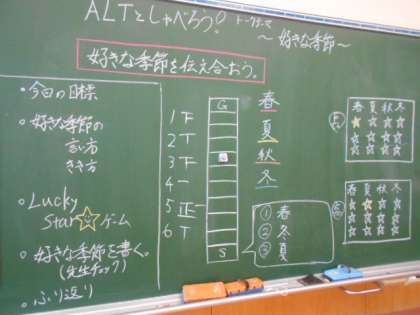 ALTとしゃべろう!
トークテーマ
～好きな季節～
好きな季節を伝え合おう。
・今日の目標
・好きな季節の
言い方
きき方
・Lucky
Starゲーム
・好きな季節を書く。
(先生チェック)
・ふり返り
1 下
2 T
3 下
4 一
5 正一
6 T
G
S
春
夏
秋
冬
① 春
② 冬
③ 夏
春 夏 秋 冬
春 夏 秋 冬